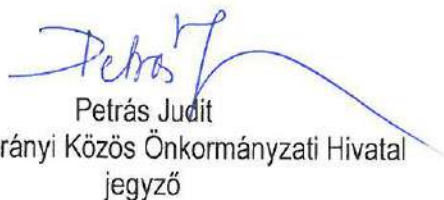 Petrás J
Petrás Judit
rányi Közös Önkormányzati Hivatal
jegyző